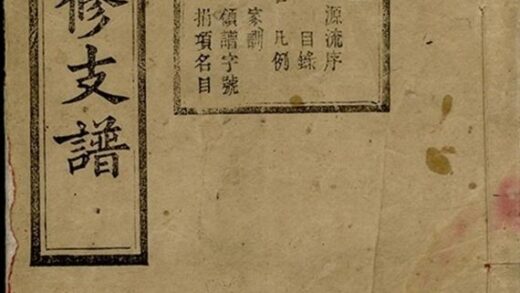 源流序
目錄
凡例
家訓
領譜字號
捐項名目
修支譜